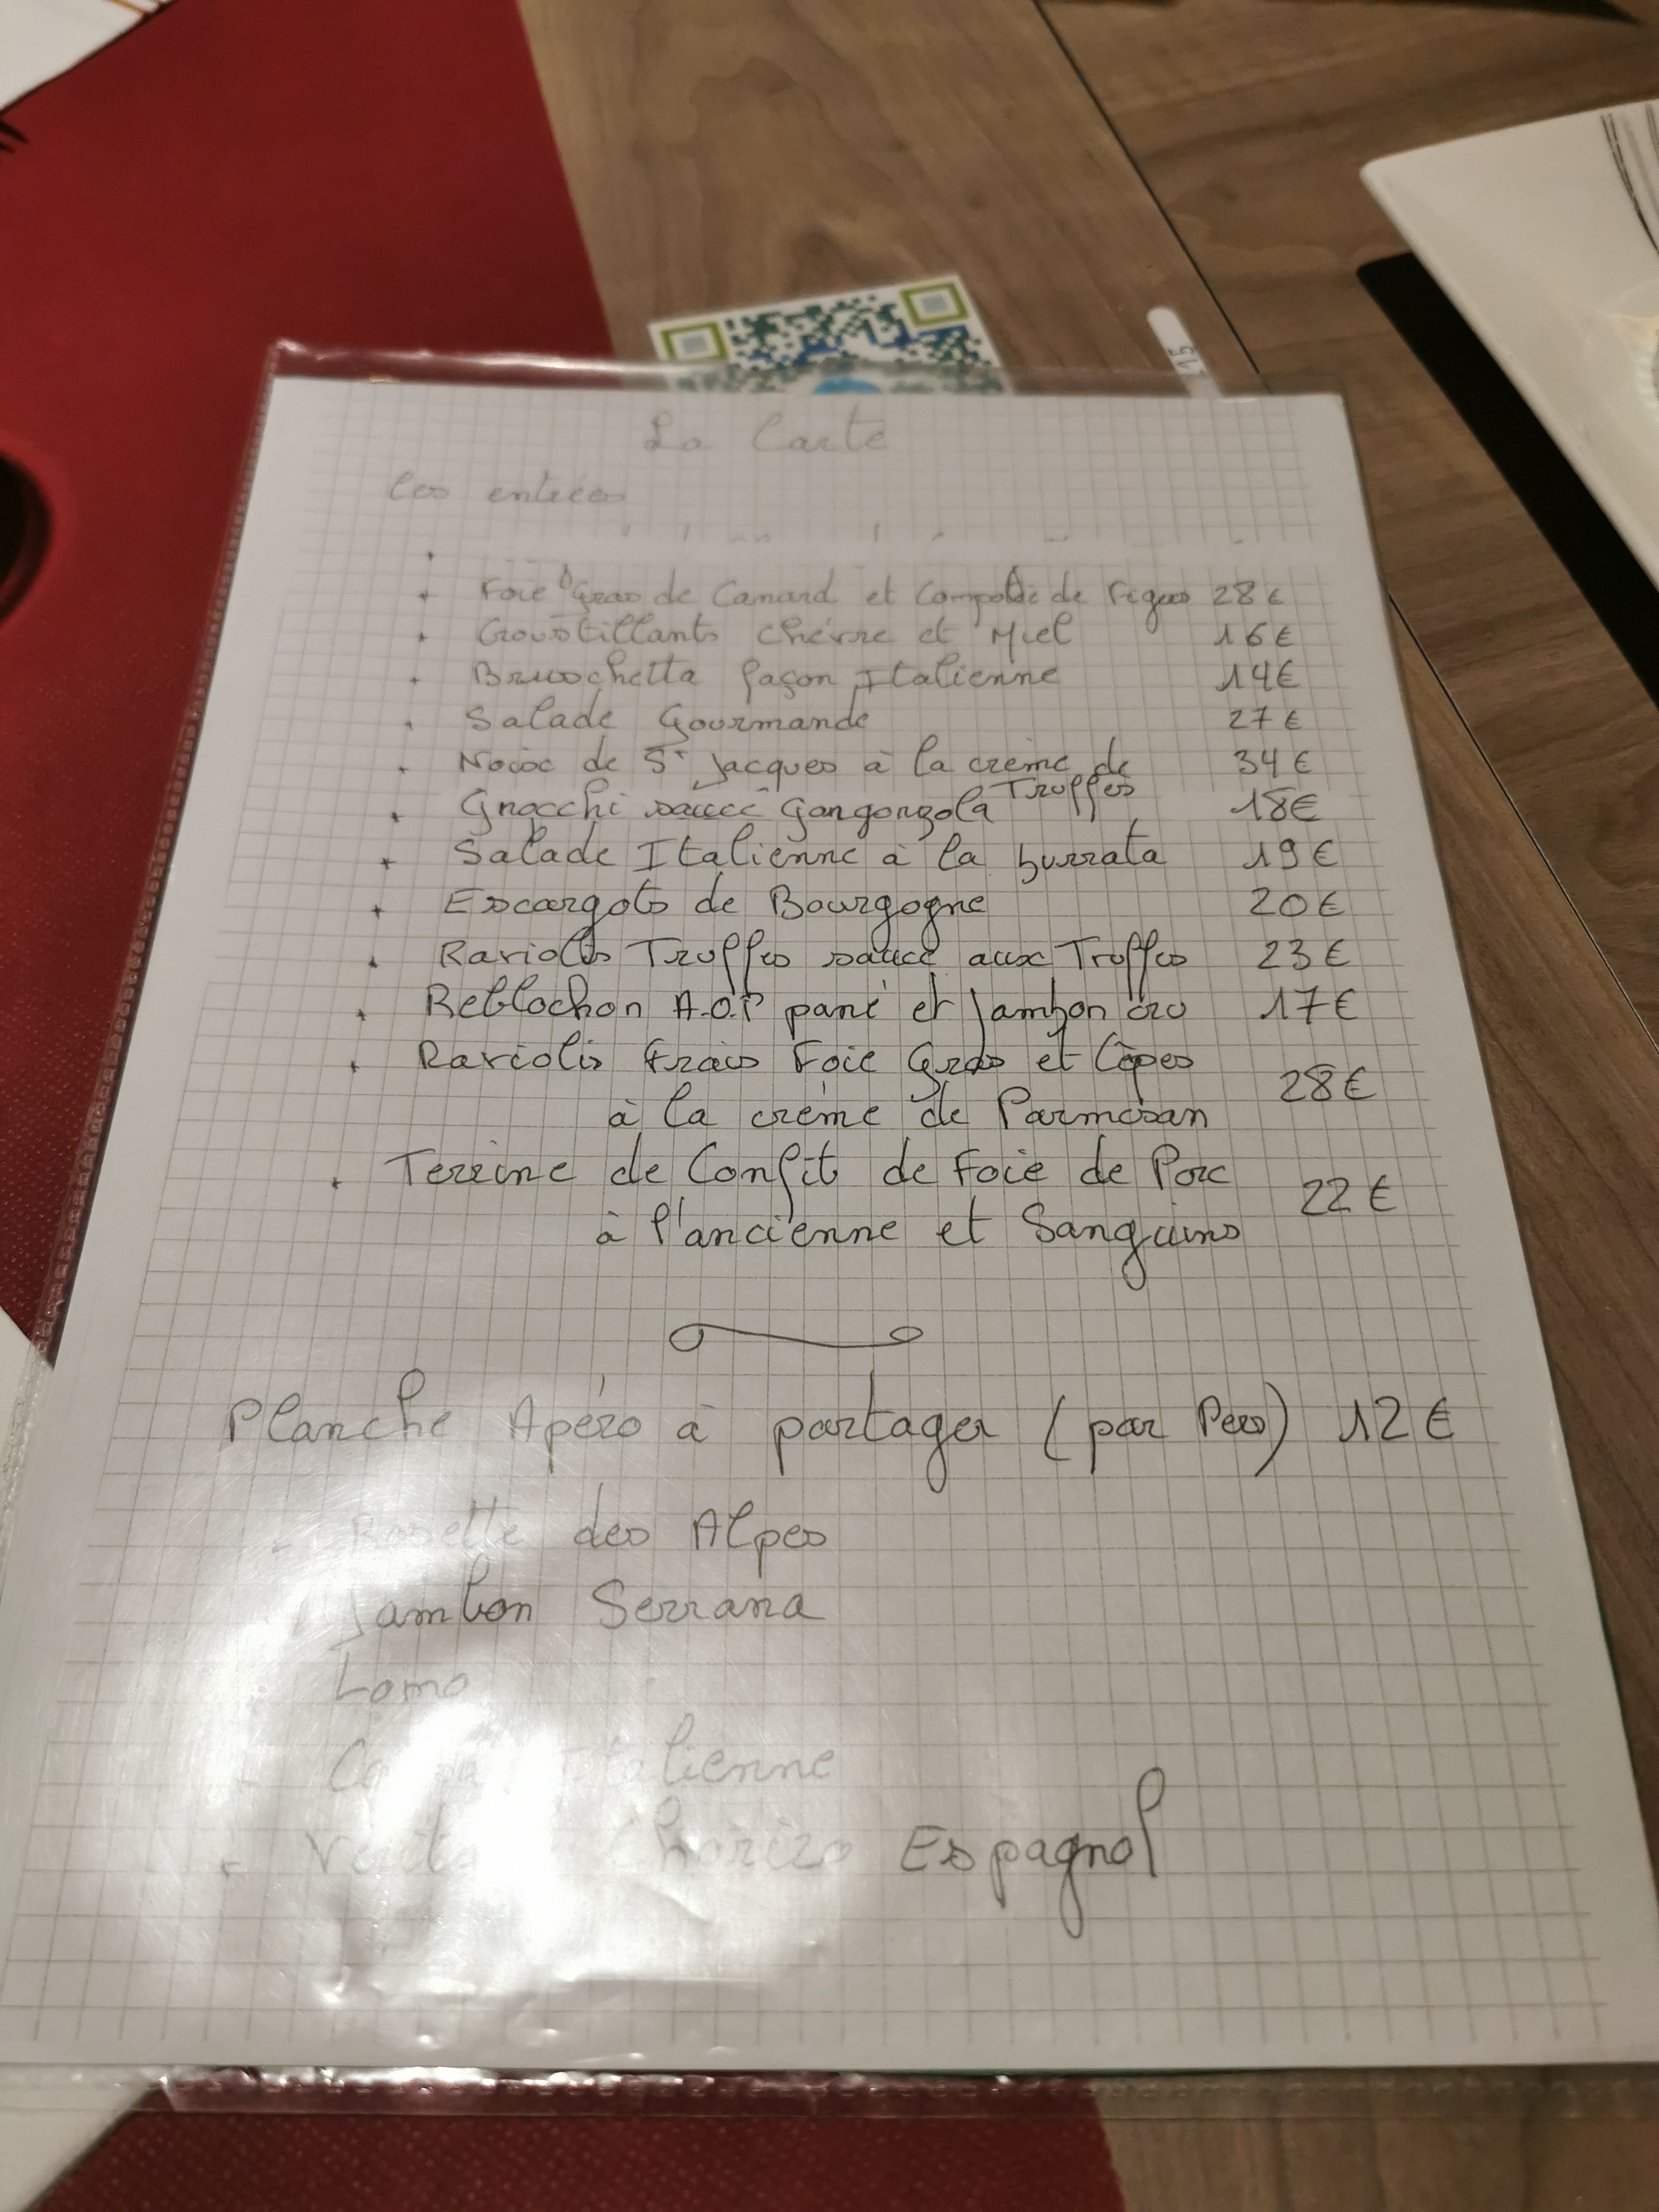 La Carte
les entrées
Foie Gras de Canard et Compotée de Figues 28€
Croustillants chèvre et Miel 16€
Bruschetta façon Italienne 14€
Salade Gourmande 27€
Noix de St Jacques à la crème de Truffes 34€
Gnocchi sauce Gorgonzola 18€
Salade Italienne à la burrata 19€
Escargots de Bourgogne 20€
Raviolis Truffes sauce aux Truffes 23€
Reblochon A.O.P pané et Jambon cru 17€
Raviolis Frais Foie Gras et Cèpes
à la crème de Parmesan 28€
Terrine de Confit de Foie de Porc
à l'ancienne et Sanguins 22€
Planche Apéro à partager (par Pers) 12€
Rosette des Alpes
Jambon Serrana
Lomo
Italienne
Chorizo Espagnol